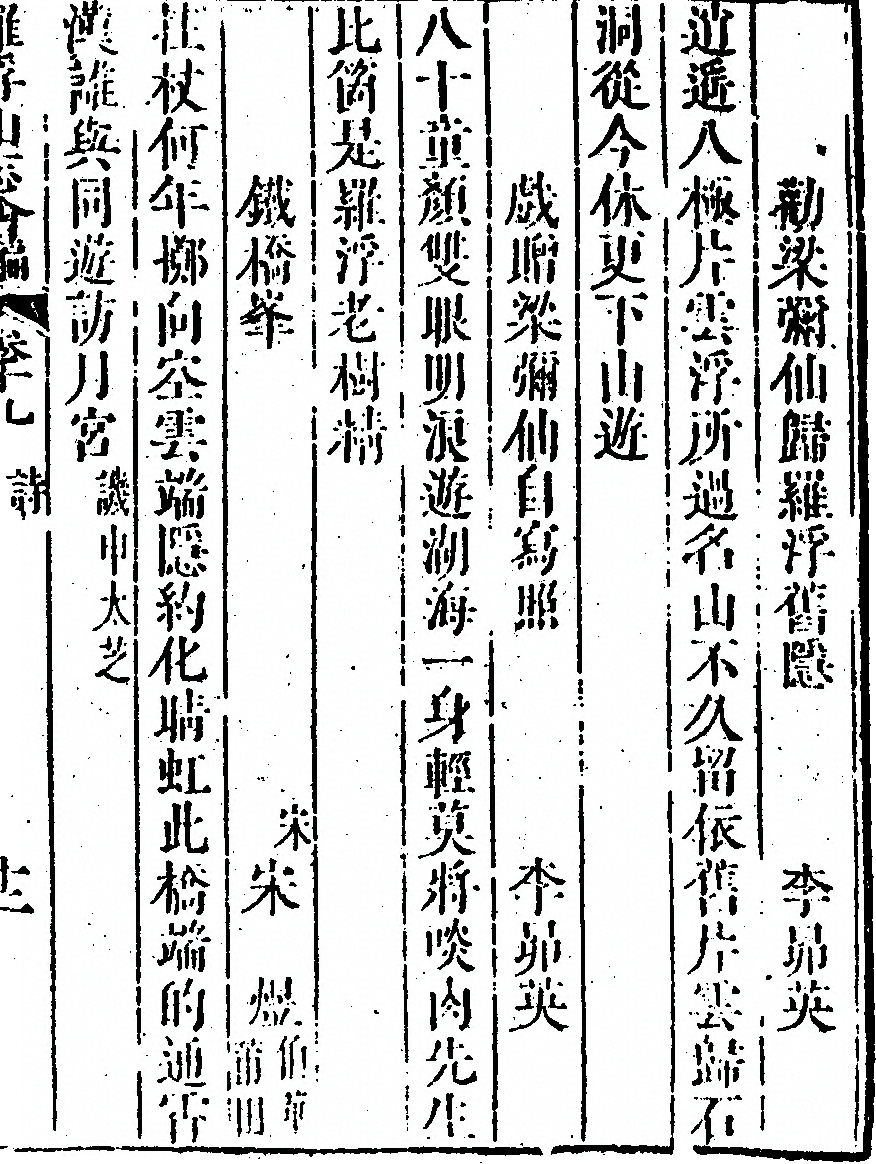 勸梁彌仙歸羅浮舊隱　李昴英
逍遥八極片雲浮所過名山不久留依舊片雲歸石
洞從今休更下山遊
戲贈梁彌仙自寫照　李昴英
八十童顏雙眼明浪遊湖海一身輕莫將啖肉先生
比箇是羅浮老樹精
鐵橋峯　宋宋煜伯華莆田
拄杖何年擲向空雲端隱約化晴虹此橋端的通霄
漢誰與同遊訪月宮譏申太芝
羅浮山志會編　卷十九　詩　十二